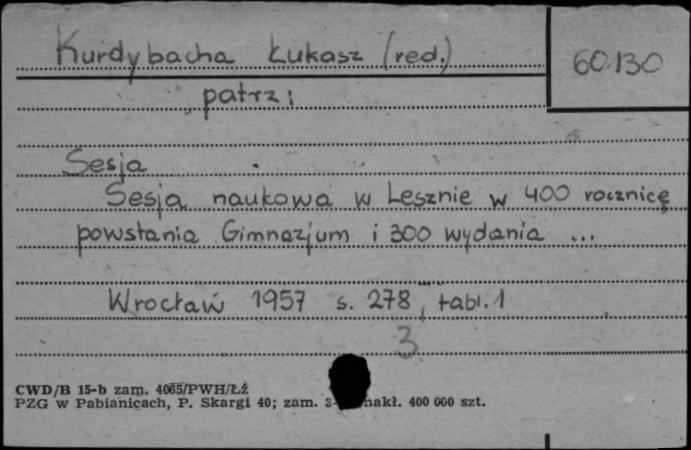 Kurdybacha Łukasz (red.)
60.130
patrz:
Sesja
Sesja naukowa w Lesznie w 400 rocznicę
powstania Gimnazjum i 300 wydania ...
Wrocław 1957 s. 278, tabl. 1
3
CWD/B 15-b zam. 4065/PWH/Łź
PZG w Pabianicach, P. Skargi 40; zam. nakł. 400 000 szt.